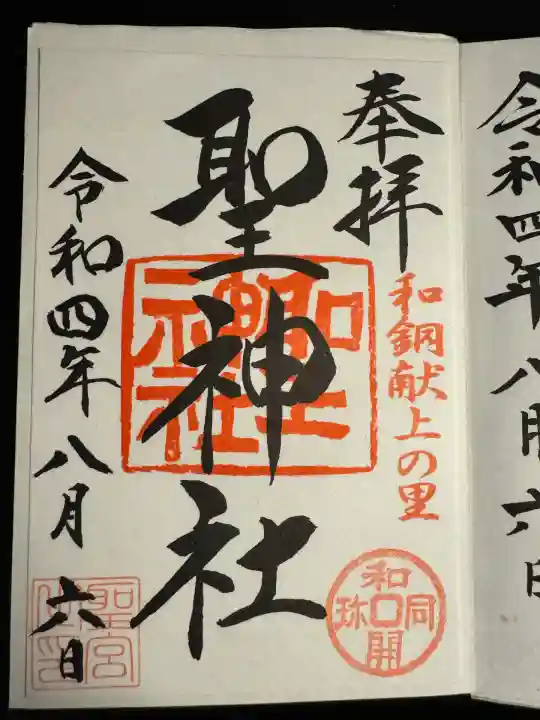 奉拝
和銅献上の里
和同開珎
聖神社
聖神社
令和四年八月六日
令和四年八月六日